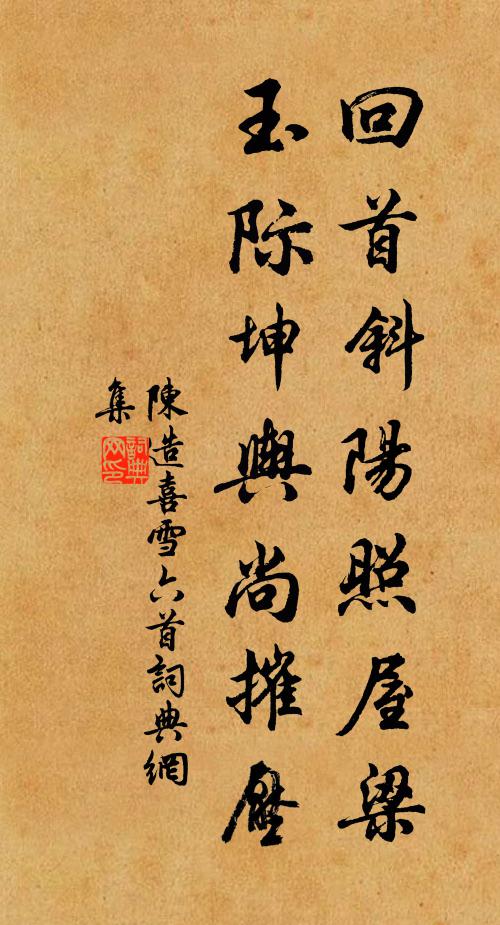 回首斜陽照屋梁
玉际坤輿尚摧壓
陳造喜雪六首詞典網
集
詞典網印